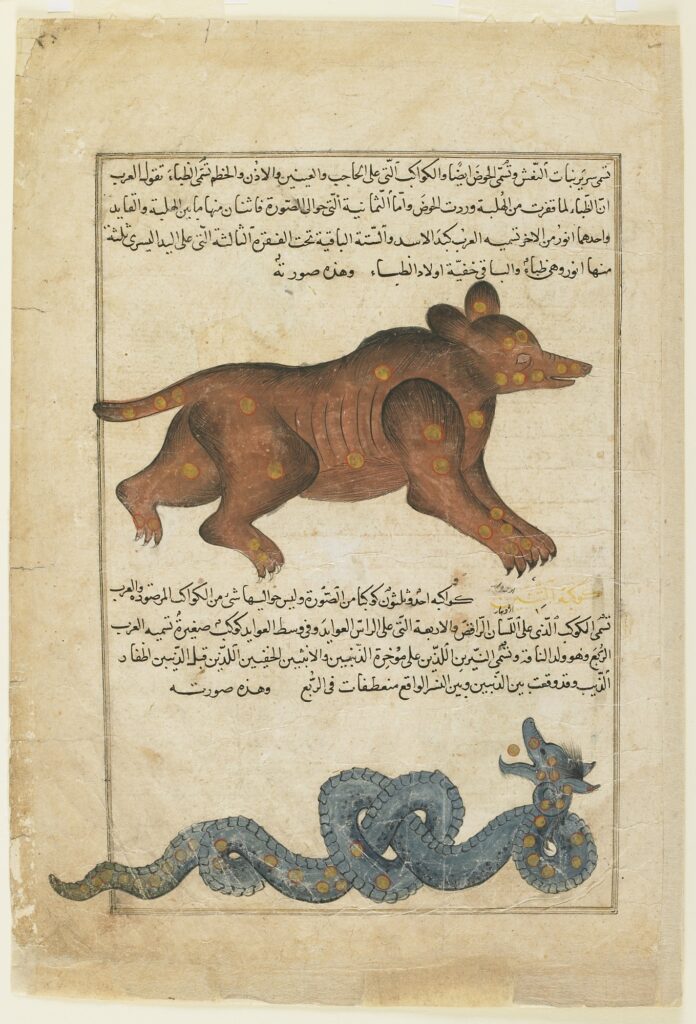 تسمى سرير بنات النعش وتسمى الحوض ايضًا والكواكب التى على الحاجب والعينين والاذن والخطم تسمى الظباء تقول العرب
ان الظباء لما قفزت من الهلبة وردت الحوض واما الثمانية التى حوالى الصورة فاثنان منها ما بين الهلبة والقايد
واحدهما انور من الاخر تسميه العرب كبد الاسد والستة الباقية تحت القفزة الثالثة التى على اليد اليسرى ثلثة
منها انور وهى ظباء والباقى خفية اولاد الظباء وهذه صورته
كوكبة التنين كواكبه احد وثلثون كوكبا من الصورة وليس حواليها شئ من الكواكب المرصودة والعرب
تسمى الكوكب الذى على اللسان الرافض والاربعة التى على الراس العوايد وفى وسط العوايد كوكب صغيرة تسميه العرب
الربع وهو ولد الناقة وتسمى النيرين اللذين على موخرة الذيبين والاثنين الخفيين اللذين قبل الذيبين اظفار
الذيب وقد وقعت بين الذيبين وبين النسر الواقع منعطفات فى الربع وهذه صورته